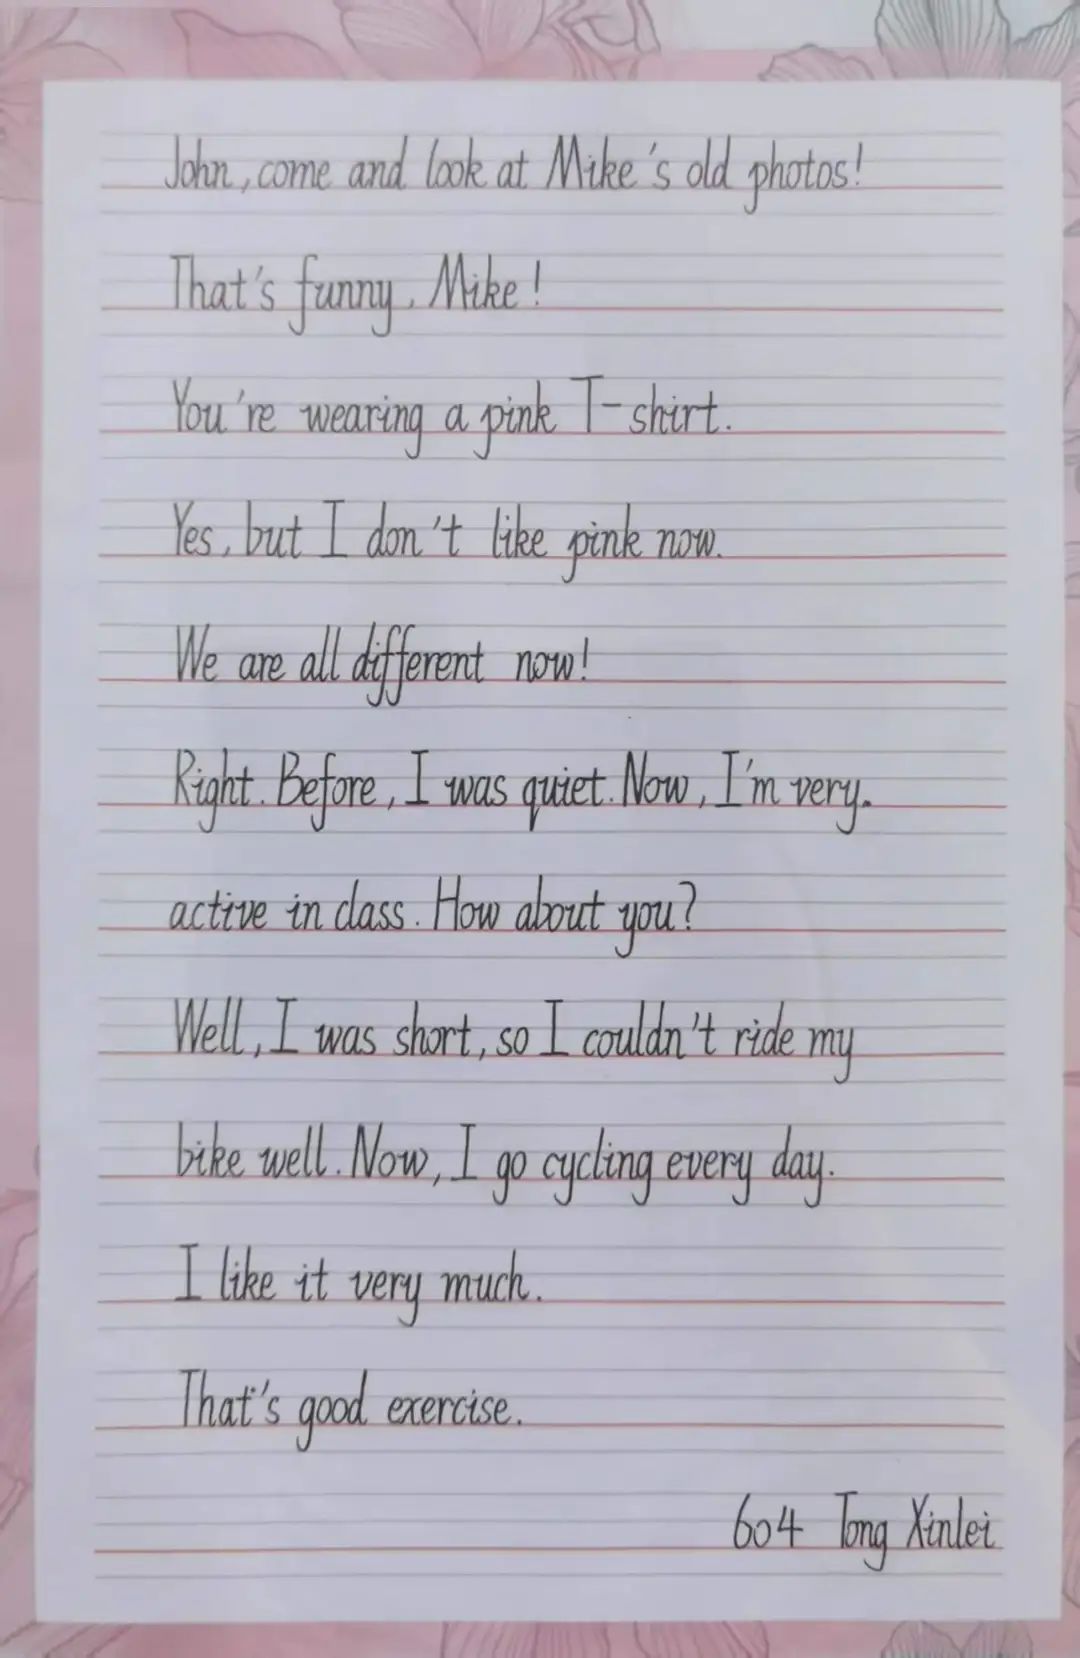 John, come and look at Mike's old photos!
That's funny, Mike!
You're wearing a pink T-shirt.
Yes, but I don't like pink now.
We are all different now!
Right. Before, I was quiet. Now, I'm very.
active in class. How about you?
Well, I was short, so I couldn't ride my
bike well. Now, I go cycling every day.
I like it very much.
That's good exercise.
604 Tong Xinlei